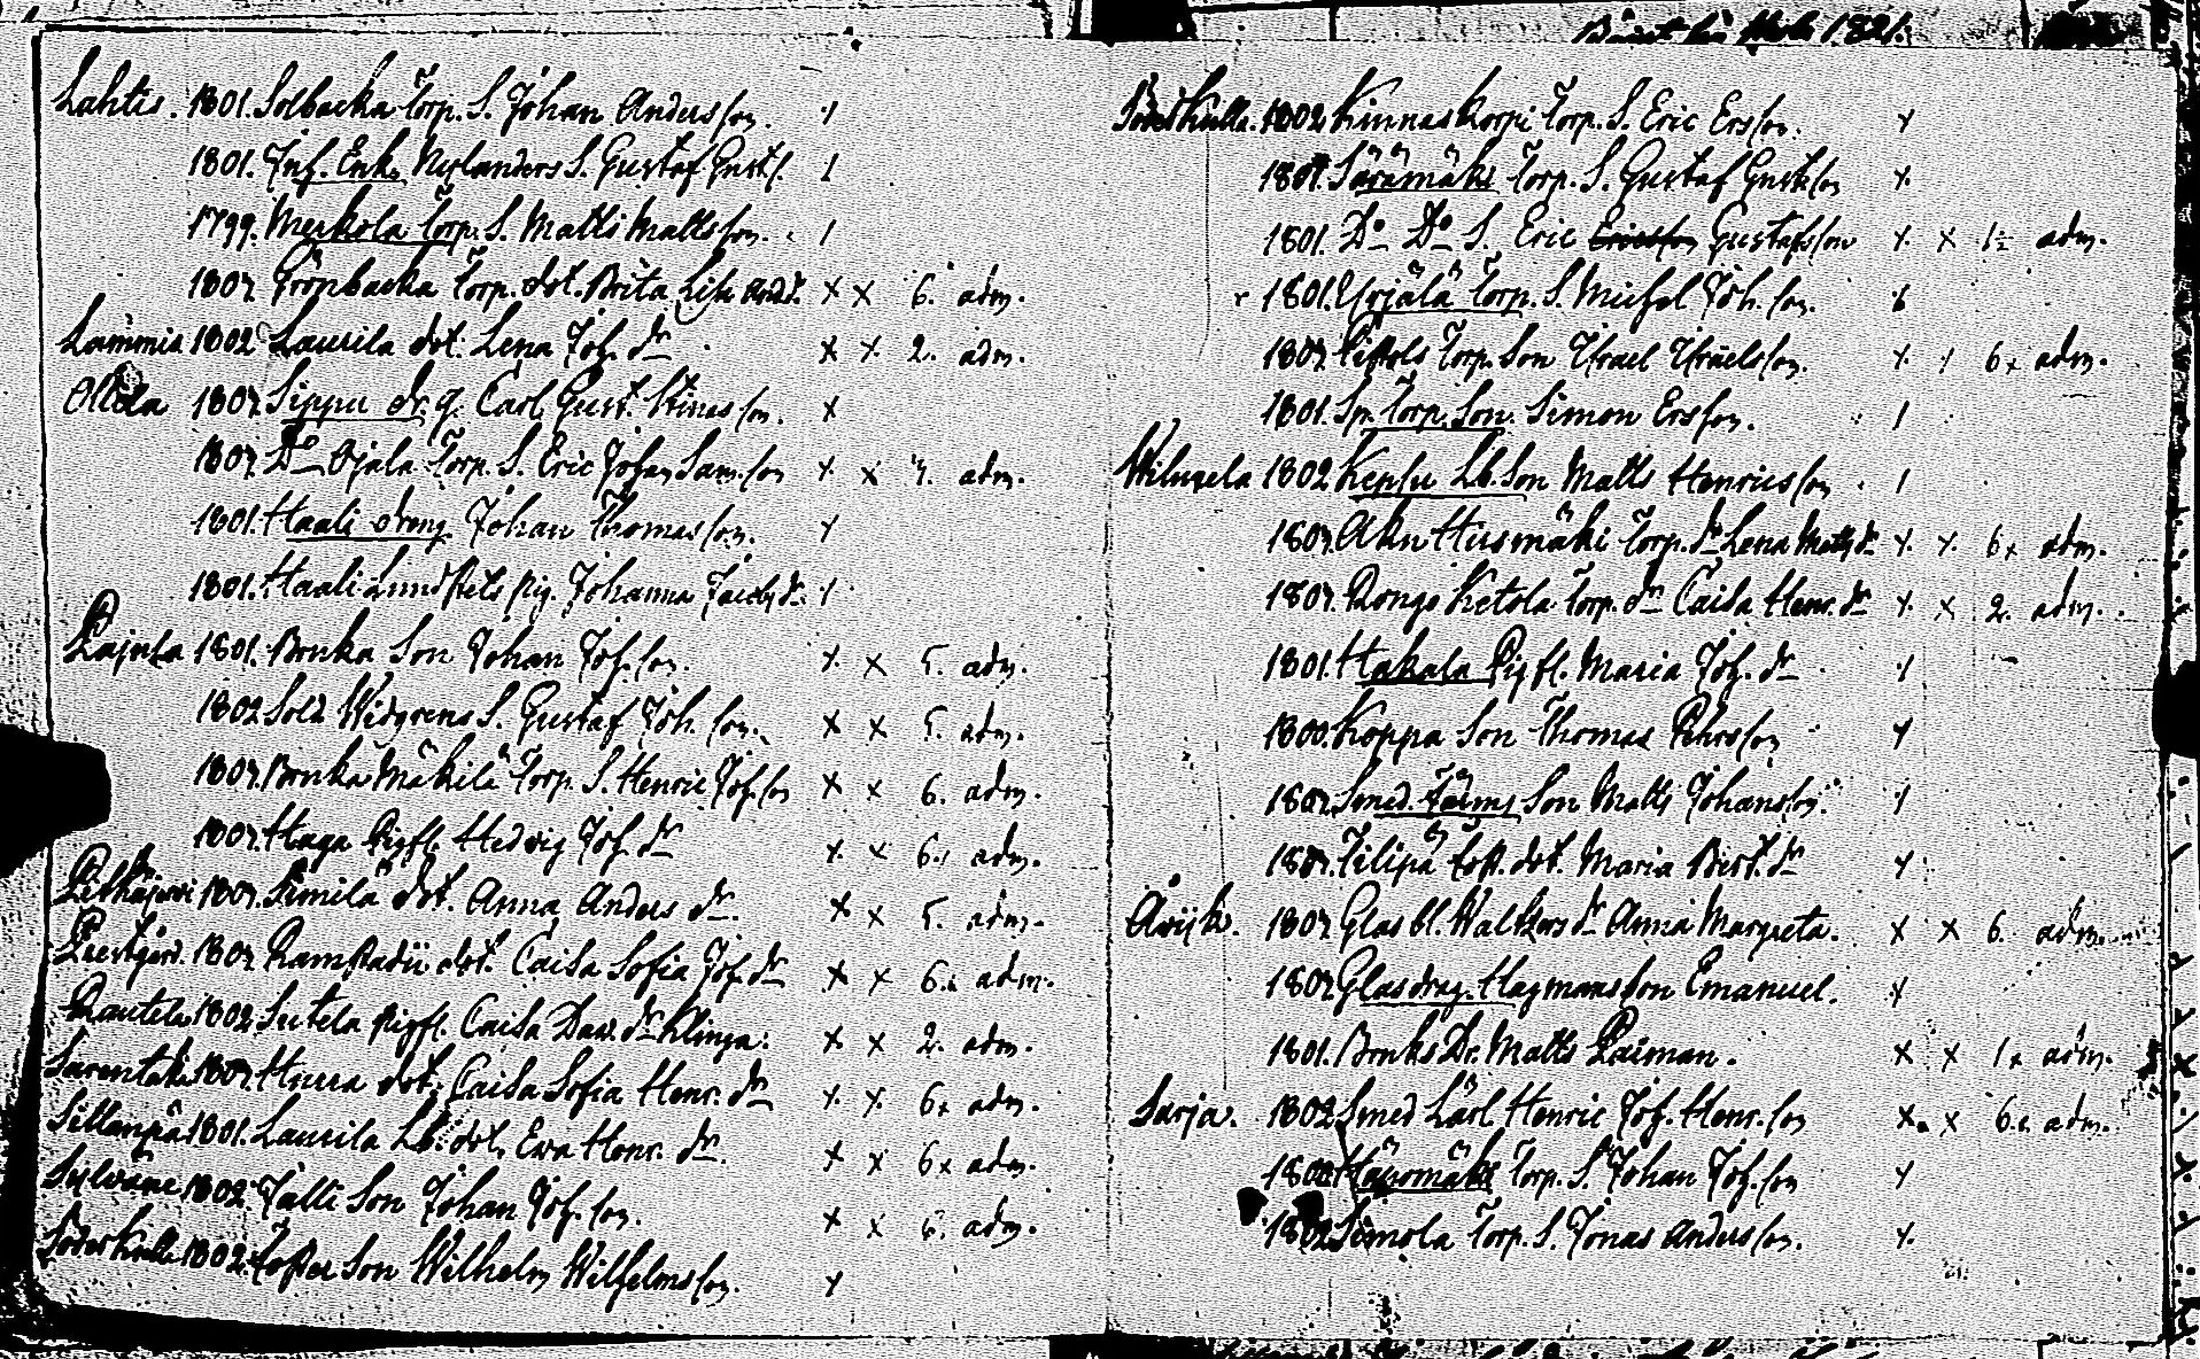 Lahtis. 1801. Solbacka Torp. S. Johan Andersson. x
1801. Inh. Enk. Nylanders S. Gustaf Gust. s. 1
1799. Merkola Torp. S. Matts Mattsson. 1
1807. Grönbacka Torp. dot. Brita Lisa And. d. x x 6. adm.
Lammis 1802 Laurila dot. Lena Joh. dr x x 2. adm.
Ollila 1807. Sippu dr. g. Carl Gust. Stinasson. x
1807. Do Ojala Torp. S. Eric Johan Sam. son x x adm.
1801. Haali dreng Johan Thomasson. x
1801. Haali Lundstets pig. Johanna Jacobs dr. 1
Pajula 1801. Bonka Son Johan Joh. son. x x 5. adm.
1802 Sold Widgrens S. Gustaf Joh. son. x x 5. adm.
1807. Bonka Mäkilä Torp. S. Henric Joh. son x x 6. adm.
1807. Haga Pigfl. Hedvig Joh. dr x x 6. adm.
Pitkäjervi 1807. Simila dot. Anna Anders dr. x x 5. adm.
Prestgård. 1807 Ramstadii dot. Caisa Sofia Joh. dr x x 6. adm.
Rautela 1802 Sutela Pigfl. Caisa Dav. dr Klinga. x x 2. adm.
Sarentaka 1807 Hurra dot. Caisa Sofia Henr. dr x x 6x adm.
Sillanpä 1801. Laurila Lb. dot. Ewa Henr. dr. x x 6x adm.
Sylväne 1802. Jalli Son Johan Joh. son. x x 6. adm.
Söderkulla 1802. Son Wilhelm Wilhelmsson. x
1821.
Söderkulla. 1802 Kinnaskorpi Torp. S. Eric Ersson. x
1801. Säramäki Torp. S. Gustaf Gustafsson x.
1801. Do Do S. Eric Ericsson Gustafsson x. x 1½ adm.
1801. Yrjälä Torp. S. Michel Joh. son. x
1807. Torp. Son Israel Israelsson. x 1 6x adm.
1801. Torp. Son. Simon Ersson. 1
Wiluxela 1802 Kepsu Lb. Son Matts Henricsson. 1
1807. Aku Husmäki Torp. dr Lena Matts dr x. x. 6x adm.
1807. Rongo Ketola Torp. dr Caisa Henr. dr x. x 2. adm.
1801. Hakala Pigfl. Maria Joh. dr x
1800. Koppa Son Thomas Pehrsson x
1807. Smed. Son Matts Johansson. x
1807. Filipä dot. Maria Bert. dr x
Åvijk. 1807. Glasbl. Walkers dr Anna Margreta. x x 6. adm.
1807. Glasdrag. Hagmans Son Emanuel. x
1801. Bruks Dr. Matts Paiman. x x 1x adm.
Sarja. 1802. Smed Lärl Henric Joh. Henr. son x. x 6. adm.
1802 Torp. S. Johan Joh. son x
1802. Simola Torp. S. Jonas Andersson. x.